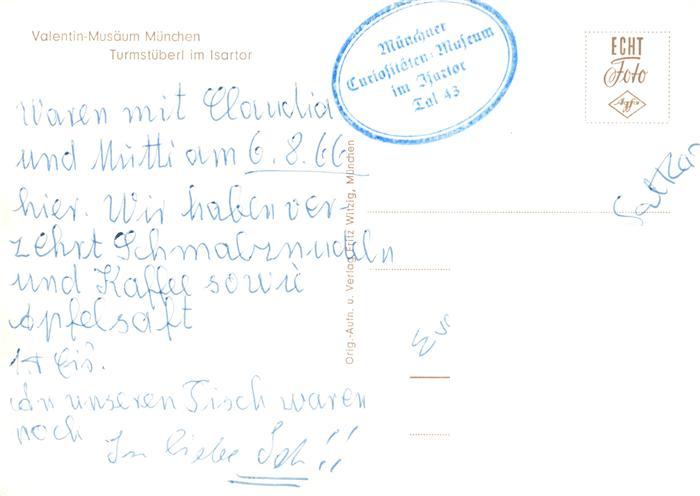 Valentin-Musäum München
Turmstüberl im Isartor
Münchner
Curiositäten-Museum
im Isartor
Tal 43
ECHT
Foto
Agfa
Waren mit Claudia
und Mutti am 6.8.66
hier. Wir haben ver-
zehrt Schmalznudeln
und Kaffee sowie
Apfelsaft
1x Eis.
An unseren Tisch waren
noch
In liebe
Orig.-Aufn. u. Verlag Fritz Witzig, München